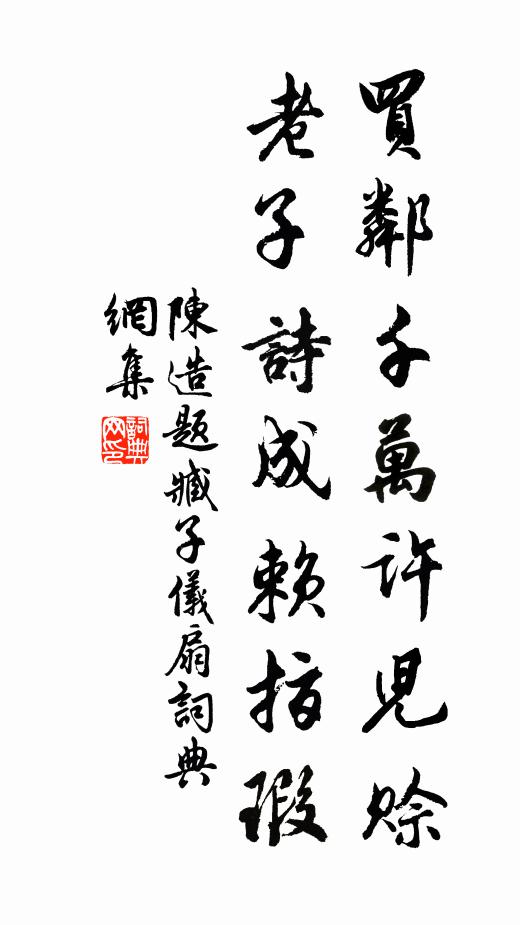 買鄰千萬許兒賒
老子詩成賴指瑕
陳造題臧子儀扇詞典
網集
詞典網印